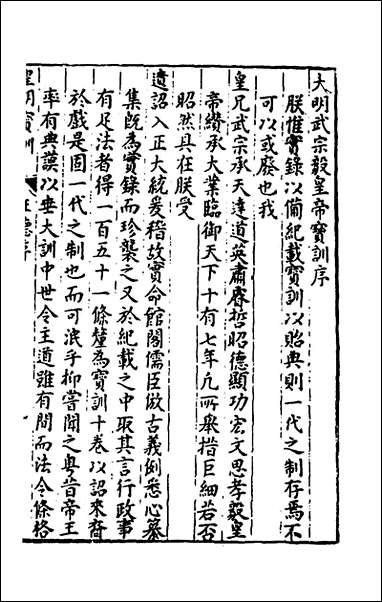 大明武宗毅皇帝寳訓序
朕惟實録以備紀載寳訓以貽典則一代之制存焉不
可以或廢也我
皇兄武宗承天達道英肅睿哲昭德顯功宏文思孝毅皇
帝纘承大業臨御天下十有七年凡所舉措巨細若否
昭然具在朕受
遺詔入正大統爰稽故實命館閣儒臣倣古義例悉心纂
集既為實録而珍襲之又於紀載之中取其言行政事
有足法者得一百五十一條釐為寳訓十卷以詔來裔
於戲是固一代之制也而可泯乎抑嘗聞之粤昔帝王
率有典謨以垂大訓中世令主道雖有間而法令條格
皇明寳訓 正德序 一